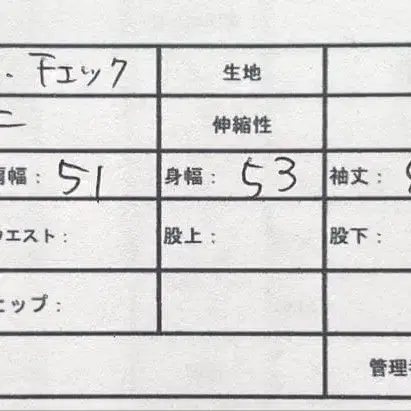 ・チェック 生地
ニ 伸縮性
肩幅： 51 身幅： 53 袖丈：
ウエスト： 股上： 股下：
ヒップ：
管理